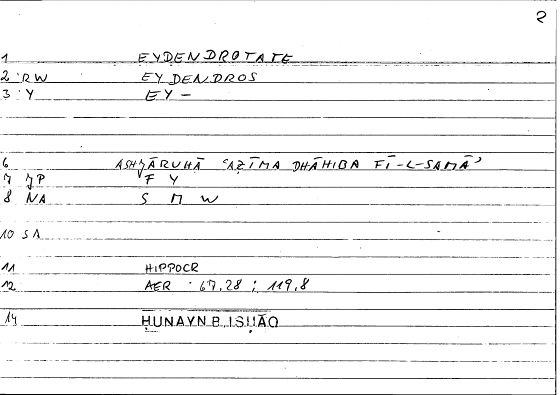 2
1 EYDENDROTATE
2 RW EYDENDROS
3 Y EY -
6 ASHJĀRUHĀ ʿAẒĪMA DHĀHIBA FĪ-L-SAMĀʾ
7 JP F Y
8 NA S M W
10 SA
11 HIPPOCR
12 AER 67,28 ; 119,8
14 ḤUNAYN B. ISḤĀQ